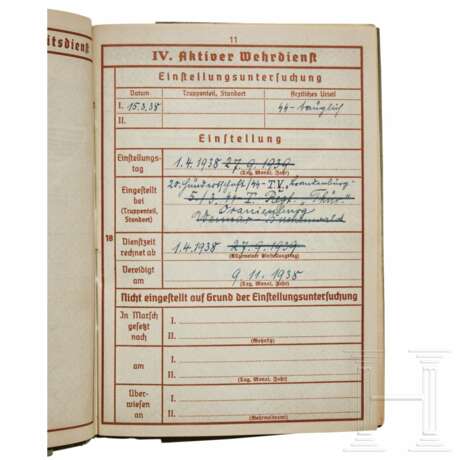 itsdienst
11
IV. Aktiver Wehrdienst
Einstellungsuntersuchung
Datum Truppenteil, Standort Ärztliches Urteil
I. 15.3.38 SS-tauglich
II.
Einstellung
Einstellungs-
tag 1.4.1938 27.9.1939
(Tag, Monat, Jahr)
Eingestellt
bei
(Truppenteil,
Standort)
20. Hundertschaft/SS-T.V. „Brandenburg"
5./3. SS T. Rgt. „Thür."
Oranienburg
Weimar-Buchenwald
18
Dienstzeit
rechnet ab 1.4.1938 27.9.1939
Vereidigt
am 9.11.1938
(Tag, Monat, Jahr)
Nicht eingestellt auf Grund der Einstellungsuntersuchung
In Marsch
gesetzt
nach
I.
II.
(Wehrbz.)
am
I.
II.
(Tag, Monat, Jahr)
Über-
wiesen
an
I.
II.
(Wehrmeldeamt)